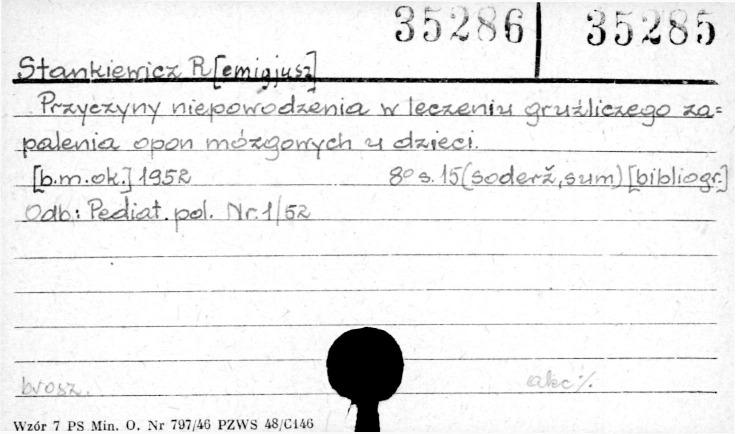 35286 | 35285
Stankiewicz R[emigjusz]
Przyczyny niepowodzenia w leczeniu gruźliczego za=
palenia opon mózgowych u dzieci.
[b.m.ok.] 1952 8° s. 15 (soderž, sum) [bibliogr.]
Odb: Pediat. pol. Nr. 1/52
brosz. akc %.
Wzór 7 PS Min. O. Nr 797/46 PZWS 48/C146